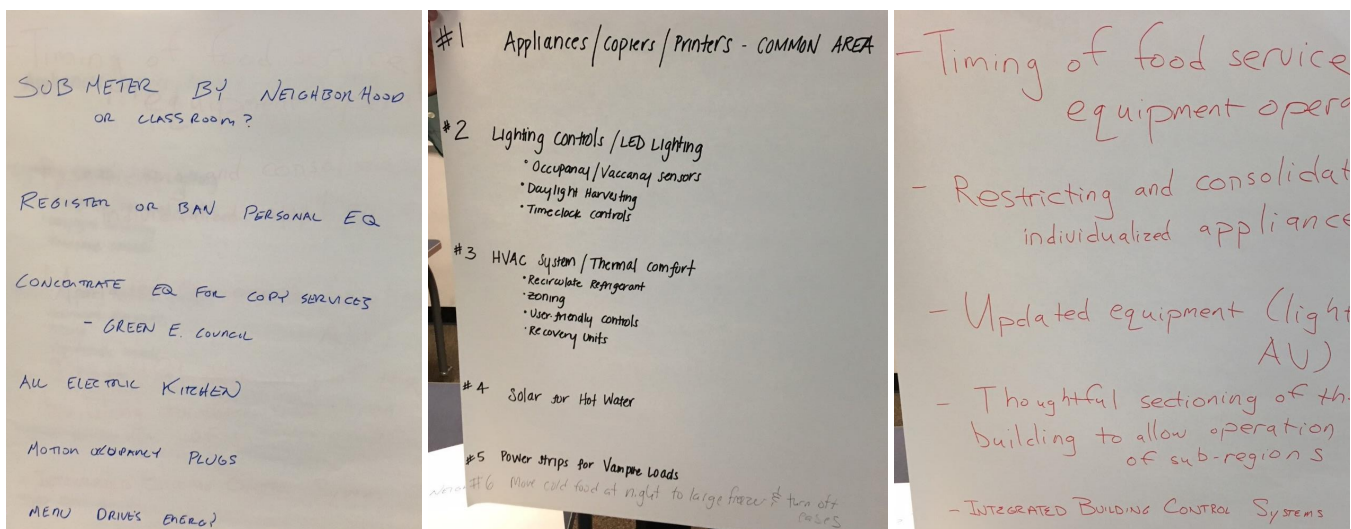 SUB METER BY NEIGHBORHOOD
OR CLASSROOM?
REGISTER OR BAN PERSONAL EQ
CONCENTRATE EQ FOR COPY SERVICES
- GREEN E. COUNCIL
ALL ELECTRIC KITCHEN
MOTION OCCUPANCY PLUGS
MENU DRIVES ENERGY
#1 Appliances/Copiers/Printers - COMMON AREA
#2 Lighting Controls/LED Lighting
• Occupancy/Vaccancy sensors
• Daylight Harvesting
• Timeclock controls
#3 HVAC System/Thermal comfort
• Recirculate Refrigerant
• Zoning
• User-friendly controls
• Recovery Units
#4 Solar for Hot Water
#5 Power strips for Vampire Loads
#6 Move cold food at night to large freezer & turn off
cases
- Timing of food service
equipment opera
- Restricting and consolidat
individualized appliance
- Updated equipment (light
AV)
- Thoughtful sectioning of th
building to allow operation
of sub-regions
- INTEGRATED BUILDING CONTROL SYSTEMS